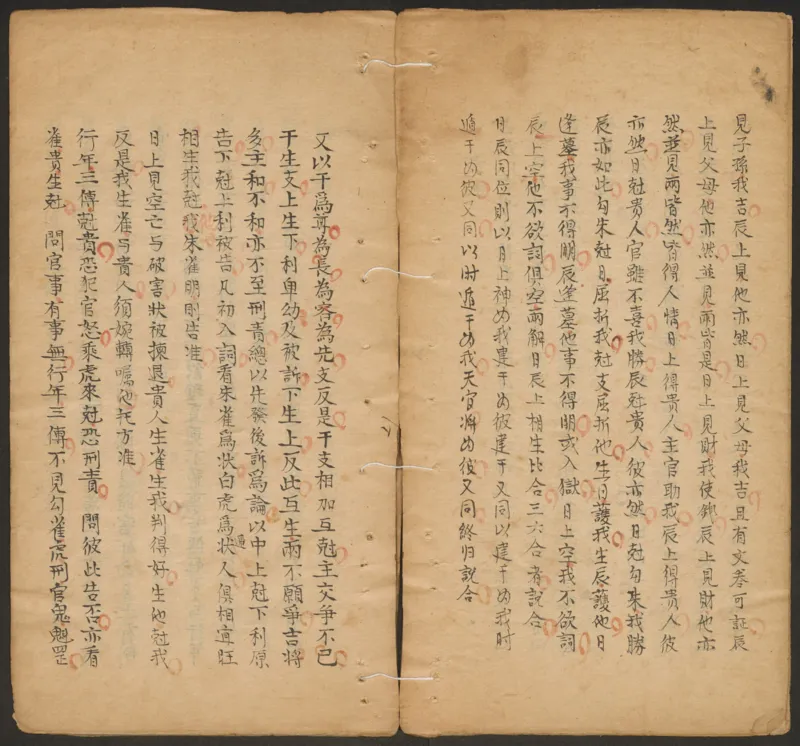 見子孫我吉辰上見他亦然日上見父母我吉且有文卷可証辰
上見父母他亦然並見兩皆是日上見財我使錢辰上見財他亦
然並見兩皆然皆得人情日上得貴人主官助我辰上得貴人彼
亦然日尅貴人官雖不喜我勝辰尅貴人彼亦然日尅勾朱我勝
辰亦如此勾朱尅日屈折我尅支屈折他生日護我生辰護他日
逢墓我事不得明辰逢墓他事不得明或入獄日上空我不欲詞
辰上空他不欲詞俱空兩解日辰上相生比合三六合者說合
日辰同位則以日上神為我建干為彼建干又同以建干為我时
遁干為彼又同以时遁干為我天官將為彼又同終归說合
又以干爲尊為長為客為先支反是干支相加互尅主交爭不已
干生支上生下利卑幼及被訴下生上反此互生兩不願爭吉將
多主和不和亦不至刑責總以先發後訴爲論以中上尅下利原
告下尅上利被告凡初入詞看朱雀爲状白虎爲状人俱相遇旺
相生我尅我朱雀明則告准
日上見空亡与破害状被揀退貴人生雀生我判得好生他尅我
反是我生雀与貴人須婉轉囑他托方准
行年三傳尅貴恐犯官怒乘虎來尅恐刑責 問彼此告否亦看
雀貴生尅 問官事有事無行年三傳不見勾雀虎刑官鬼魁罡